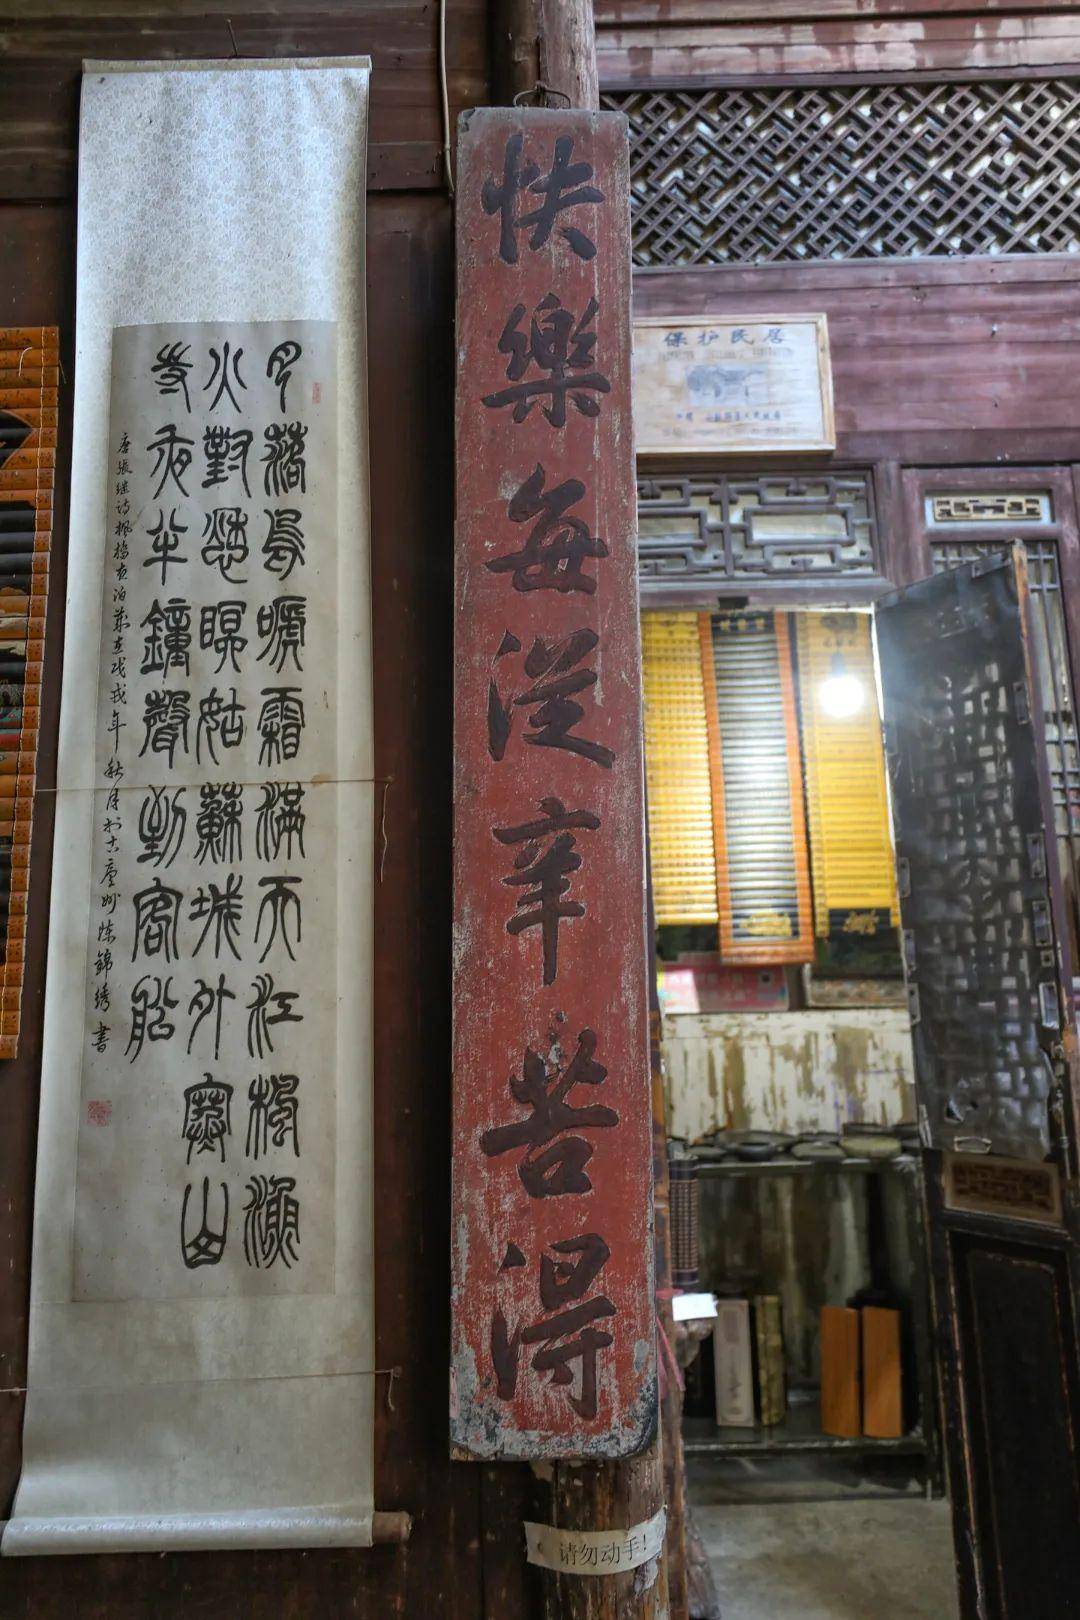 快樂每從辛苦得
月落烏啼霜滿天江楓漁
火對愁眠姑蘇城外寒山
寺夜半鐘聲到客船
唐張继诗枫橋夜泊歲在戊戌年秋月於古廬州陈錦绣書
保护民居
请勿动手!